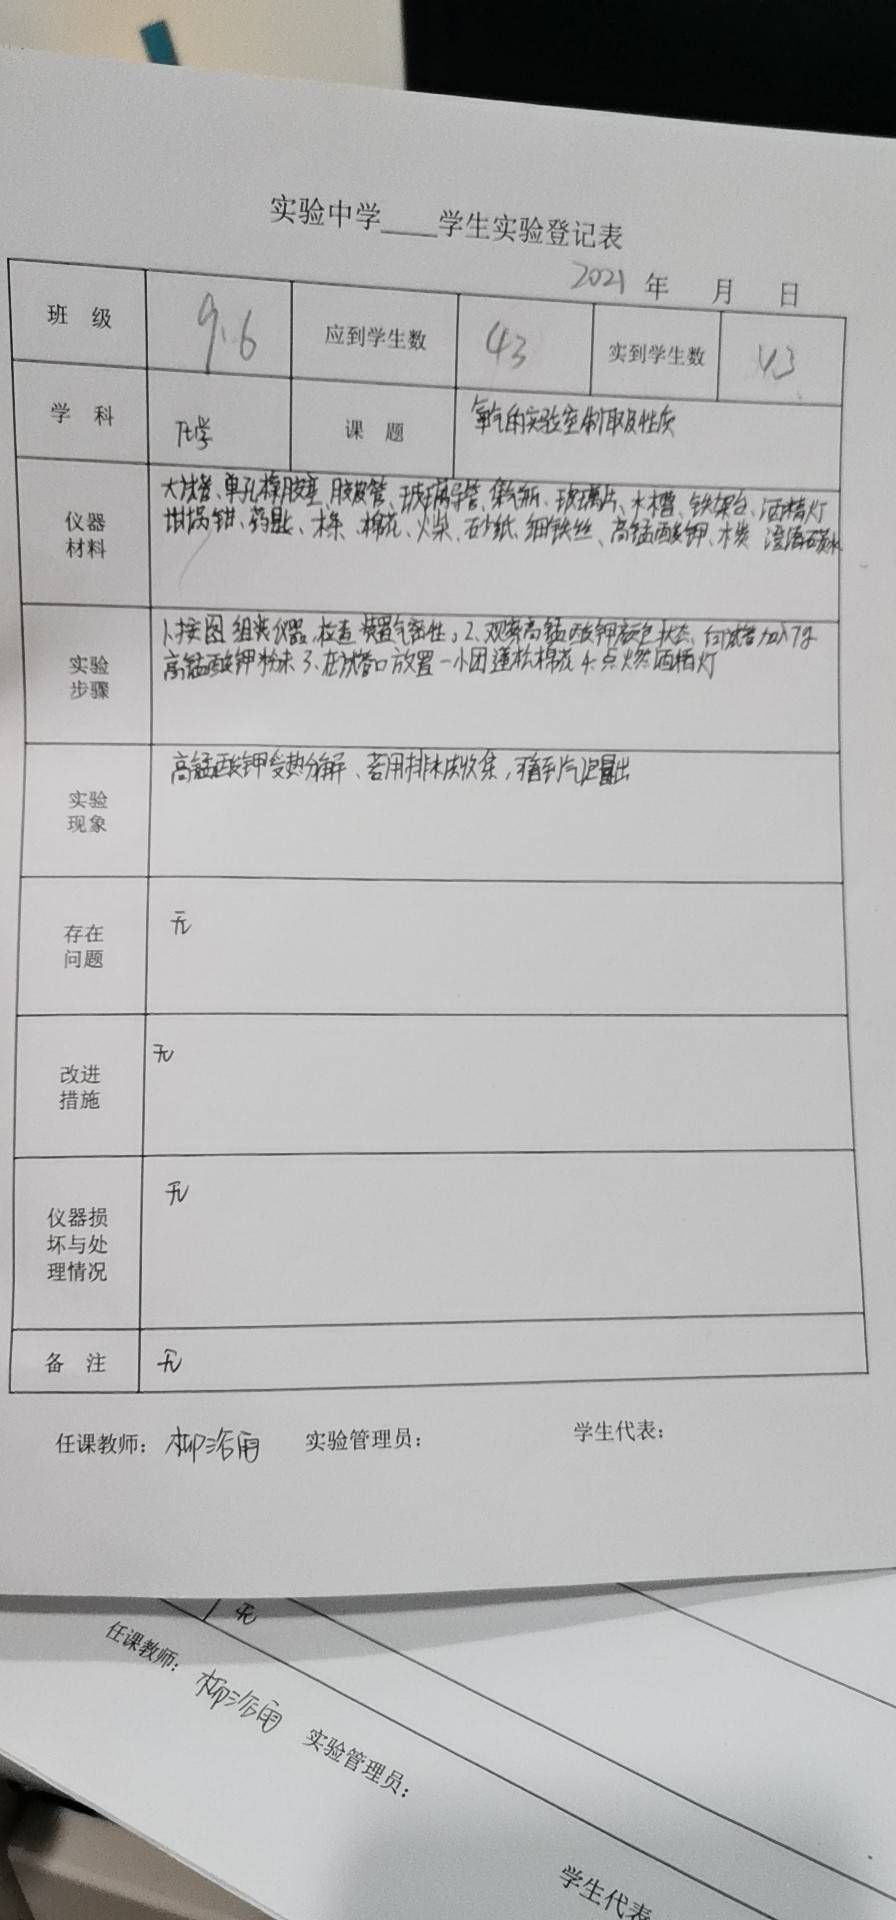 实验中学____学生实验登记表
2021 年 月 日
班 级 9.6 应到学生数 43 实到学生数 43
学 科 化学 课 题 氧气的实验室制取及性质
仪器
材料
大试管、单孔橡胶塞、胶皮管、玻璃导管、集气瓶、玻璃片、水槽、铁架台、酒精灯
坩埚钳、药匙、木条、棉花、火柴、砂纸、细铁丝、高锰酸钾、木炭 澄清石灰水
实验
步骤
1、按图组装仪器,检查装置气密性。2、观察高锰酸钾颜色状态、向试管加入7g
高锰酸钾粉末 3、在试管口放置一小团蓬松棉花 4、点燃酒精灯
实验
现象
高锰酸钾受热分解、若用排水法收集,看到气泡冒出
存在
问题
无
改进
措施
无
仪器损
坏与处
理情况
无
备 注 无
任课教师: 柳 雨 实验管理员: 学生代表:
无
任课教师: 柳 雨 实验管理员:
学生代表